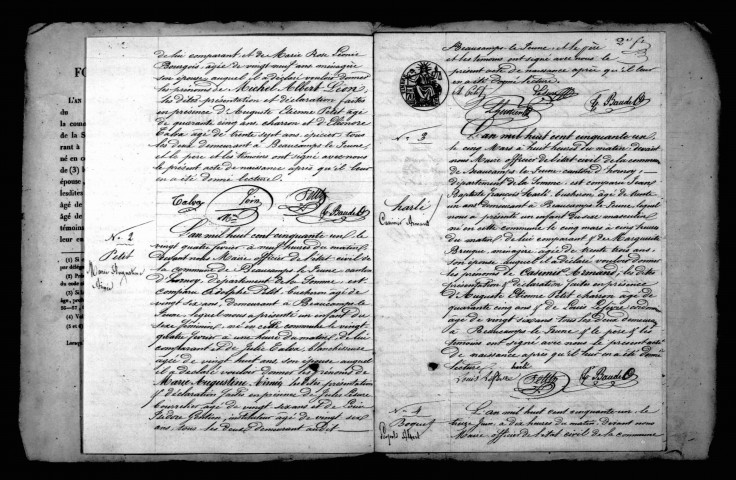 FO
L'AN
du
la com
de la S
rant à
né en c
de (3) l
épouse
lesdites
âgé de
âgé de
témoins
leur en
(1) Si
(4) Va
de lui comparant et de Marie Rose Léonie
Bourgois, agée de vingt neuf ans ménagère
son épouse auquel il a déclaré vouloir donner
les prénoms de Michel Albert Léon,
les dites présentation et déclaration faites
en présence d'Auguste Etienne Petit agé
de quarante cinq ans charron et d'Eléonore
Calva agé de trente sept ans épicier tous
les deux demeurant à Beaucamps le Jeune,
et le père et les témoins ont signé avec nous
le présent acte de naissance après qu'il leur
en a été donné lecture.
Calva Petit Le Baudet
N° 2
Petit
Marie Augustine
Aimée
L'an mil huit cent cinquante un le
vingt quatre février à neuf heures du matin
devant nous Maire officier de l'état civil de
la commune de Beaucamps le Jeune canton
d'hornoy, département de la Somme est
comparu Adolphe Petit bucheron agé de
vingt six ans, demeurant à Beaucamps le
Jeune lequel nous a présenté un enfant du
sexe féminin né en cette commune le vingt
quatre février à une heure du matin, de lui
comparant et de Julie Calva, blanchisseuse
agée de vingt huit ans son épouse auquel
il a déclaré vouloir donner les prénoms de
Marie Augustine Aimée les dites présentation
et déclaration faites en présence de Jules
agé de vingt six ans et de
Isidore instituteur agé de vingt six
ans, tous les deux demeurant audit
2e fe
Beaucamps le Jeune, et le père
et les témoins ont signé avec nous le
présent acte de naissance après qu'il leur
en a été donné lecture.
A Petit Le Baudet
N° 3
Harlé
Casimir Armand
L'an mil huit cent cinquante un
le cinq Mars à huit heures du matin devant
nous Maire officier de l'état civil de la commune
de Beaucamps le Jeune canton d'hornoy,
département de la Somme, est comparu Jean
Baptiste François Harlé, agé de trente
un ans demeurant à Beaucamps le Jeune, lequel
nous a présenté un enfant du sexe masculin
né en cette commune le cinq mars à cinq heures
du matin de lui comparant et de Marguerite
ménagère agée de trente trois ans
son épouse auquel il a déclaré vouloir donner
les prénoms de Casimir Armand, les dites
présentation & déclaration faites en présence
d'Auguste Etienne Petit charron agé de
quarante cinq ans et de Louis
agé de vingt six ans tous les deux demeurant
à Beaucamps le Jeune & le père & les
témoins ont signé avec nous le présent acte
de naissance après qu'il leur en a été donné
lecture. harlé
Louis Lefevre Petit Le Baudet
N° 4
Boquet
L'an mil huit cent cinquante un le
treize Juin, à dix heures du matin devant nous
Maire officier de l'état civil de la commune